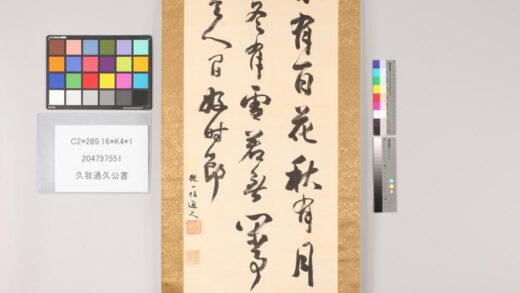 C2*289.16*K4*1
204797551
久我通久公書
有百花秋有月
冬有雪若無閑事
是人間好時節
従一位通久